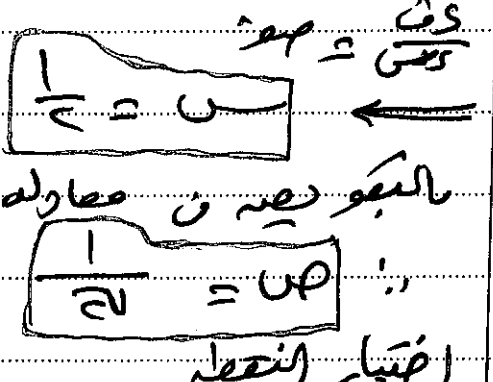 دف/دس = صفر
← س = ١/٢
بالتعويض في معادله
∴ ص =
اختيار النقطه